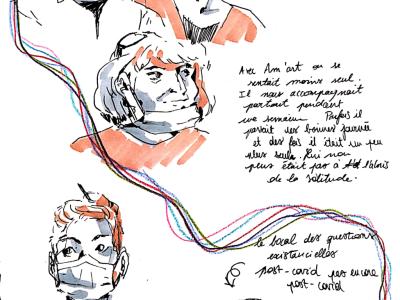 Avec Am'art on se
sentait moins seul.
Il nous accompagnait
partout pendant
une semaine. Parfois il
passait des bonnes journée
et des fois il était un peu
plus seul. Lui non
plus était pas à l'abris
de la solitude.
le bocal des questions
existencielles
post-covid pas encore
post-covid